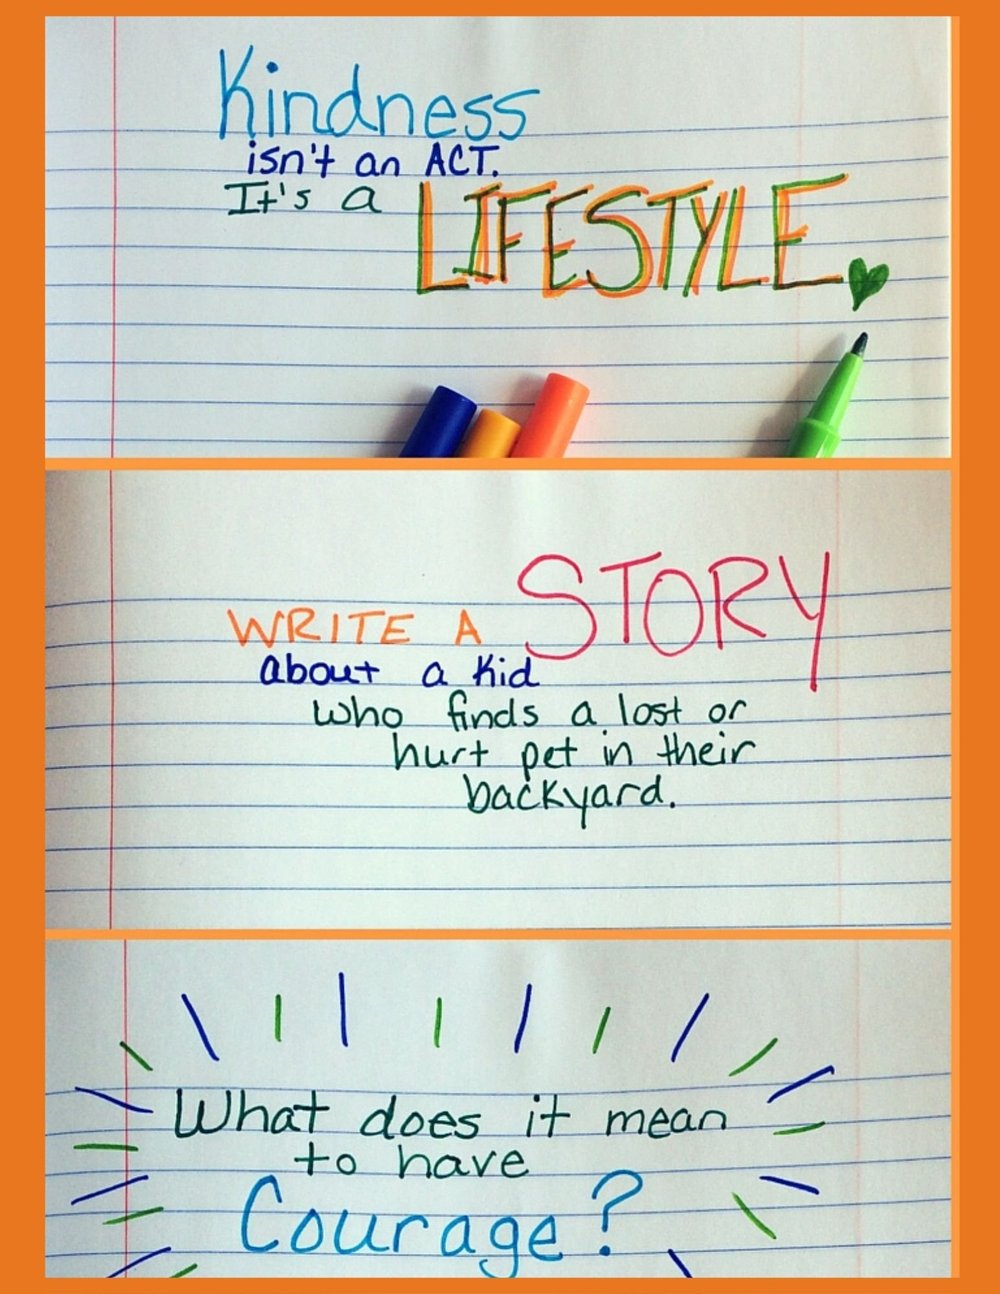 Kindness
isn't an ACT.
It's a LIFESTYLE.
WRITE A STORY
about a kid
who finds a lost or
hurt pet in their
backyard.
What does it mean
to have
Courage?